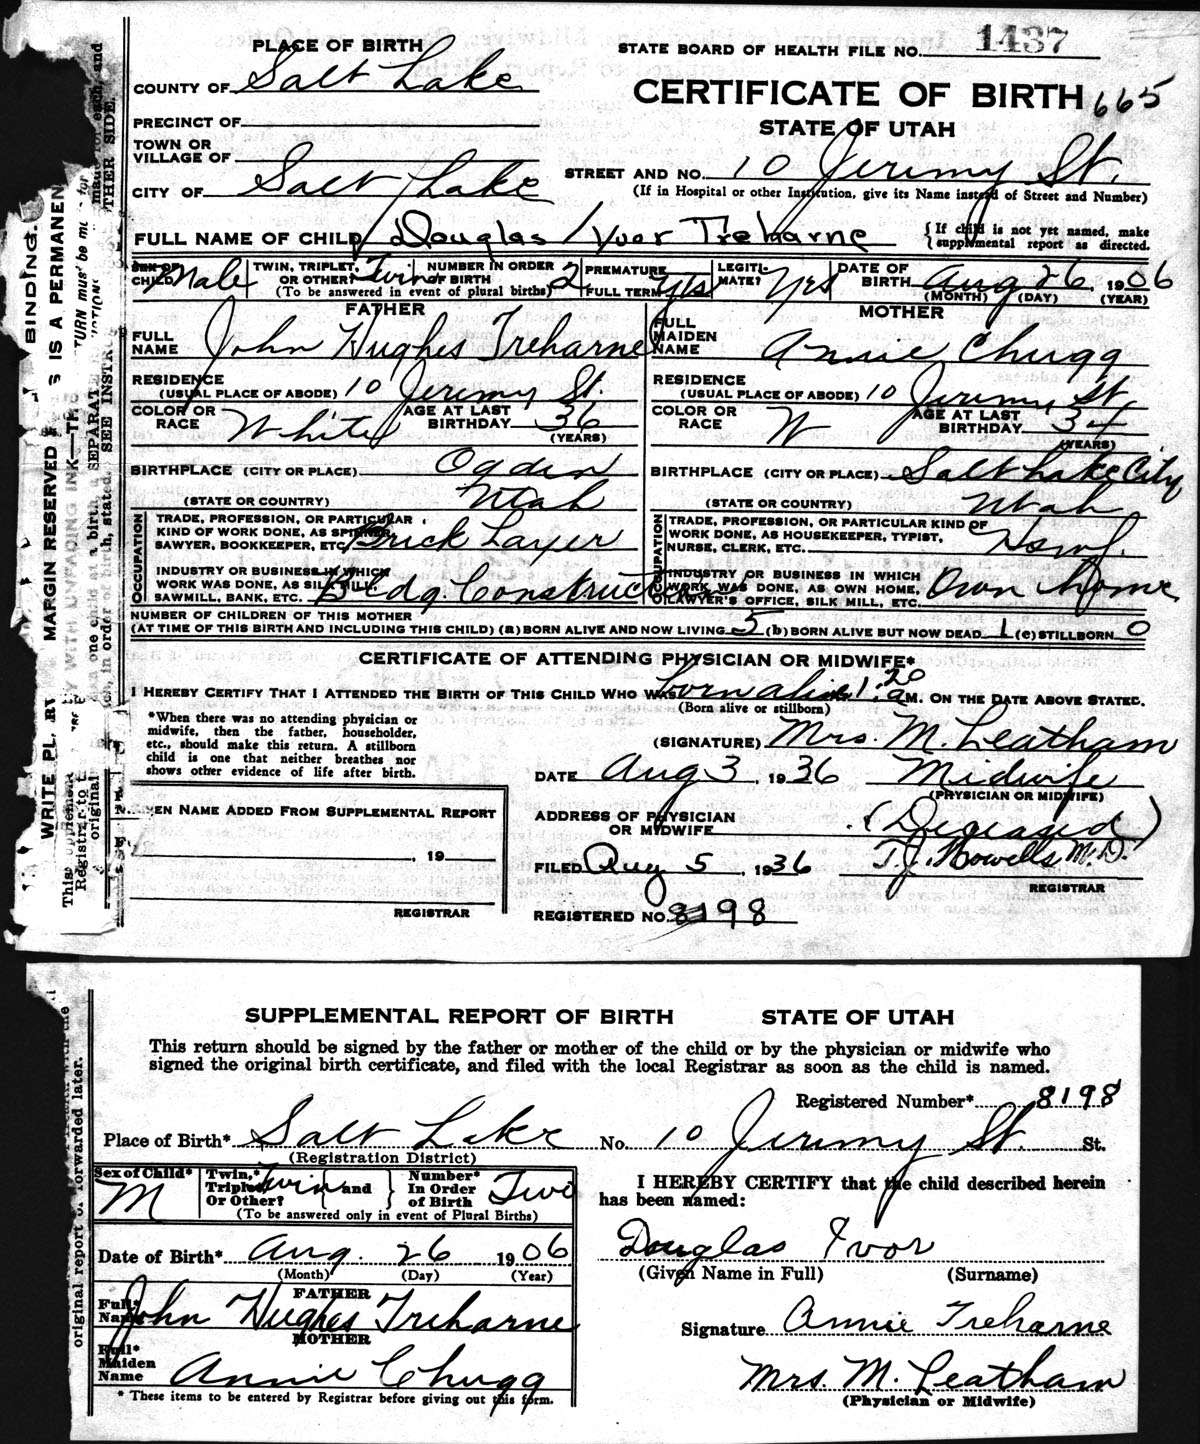 PLACE OF BIRTH
STATE BOARD OF HEALTH FILE NO. 1437
COUNTY OF Salt Lake
CERTIFICATE OF BIRTH 665
PRECINCT OF
STATE OF UTAH
TOWN OR
VILLAGE OF
STREET AND NO. 10 Jeremy St.
CITY OF Salt Lake
(If in Hospital or other Institution, give its Name instead of Street and Number)
FULL NAME OF CHILD Douglas Ivor Treharne
{ If child is not yet named, make
supplemental report as directed.
SEX OF CHILD Male
TWIN, TRIPLET, OR OTHER? Twin
NUMBER IN ORDER OF BIRTH 2
(To be answered in event of plural births)
PREMATURE
FULL TERM yes
LEGITI-
MATE? Yes
DATE OF BIRTH Aug 26, 1906
(MONTH) (DAY) (YEAR)
FATHER
FULL NAME John Hughes Treharne
RESIDENCE
(USUAL PLACE OF ABODE) 10 Jeremy St.
COLOR OR RACE White
AGE AT LAST BIRTHDAY 36
(YEARS)
BIRTHPLACE (CITY OR PLACE) Ogden
(STATE OR COUNTRY) Utah
OCCUPATION
TRADE, PROFESSION, OR PARTICULAR
KIND OF WORK DONE, AS SPINNER,
SAWYER, BOOKKEEPER, ETC. Brick Layer
INDUSTRY OR BUSINESS IN WHICH
WORK WAS DONE, AS SILK MILL,
SAWMILL, BANK, ETC. Bldg. Construction
MOTHER
FULL MAIDEN NAME Annie Chugg
RESIDENCE
(USUAL PLACE OF ABODE) 10 Jeremy St
COLOR OR RACE W
AGE AT LAST BIRTHDAY 34
(YEARS)
BIRTHPLACE (CITY OR PLACE) Salt Lake City
(STATE OR COUNTRY) Utah
OCCUPATION
TRADE, PROFESSION, OR PARTICULAR KIND OF
WORK DONE, AS HOUSEKEEPER, TYPIST,
NURSE, CLERK, ETC. Hswf.
INDUSTRY OR BUSINESS IN WHICH
WORK WAS DONE, AS OWN HOME,
LAWYER'S OFFICE, SILK MILL, ETC. Own home
NUMBER OF CHILDREN OF THIS MOTHER
(AT TIME OF THIS BIRTH AND INCLUDING THIS CHILD) (a) BORN ALIVE AND NOW LIVING 5 (b) BORN ALIVE BUT NOW DEAD 1 (c) STILLBORN 0
CERTIFICATE OF ATTENDING PHYSICIAN OR MIDWIFE*
I HEREBY CERTIFY THAT I ATTENDED THE BIRTH OF THIS CHILD WHO WAS born alive 1:20 a M. ON THE DATE ABOVE STATED.
(Born alive or stillborn)
*When there was no attending physician or
midwife, then the father, householder,
etc., should make this return. A stillborn
child is one that neither breathes nor
shows other evidence of life after birth.
(SIGNATURE) Mrs. M. Leatham
DATE Aug 3, 1936 Midwife
(PHYSICIAN OR MIDWIFE)
GIVEN NAME ADDED FROM SUPPLEMENTAL REPORT
ADDRESS OF PHYSICIAN
OR MIDWIFE (Deceased)
, 19
FILED Aug 5, 1936 T.J. Howells M.D.
REGISTRAR
REGISTRAR
REGISTERED NO. 8198
BINDING.
MARGIN RESERVED
IS A PERMANEN
SEE INSTR
THER SIDE.
SUPPLEMENTAL REPORT OF BIRTH STATE OF UTAH
This return should be signed by the father or mother of the child or by the physician or midwife who
signed the original birth certificate, and filed with the local Registrar as soon as the child is named.
Registered Number* 8198
Place of Birth* Salt Lake No. 10 Jeremy St. St.
(Registration District)
Sex of Child* M
Twin,* Triplet, Or Other? Twin { and } Number* In Order of Birth Two
(To be answered only in event of Plural Births)
I HEREBY CERTIFY that the child described herein
has been named:
Date of Birth* Aug. 26 1906
(Month) (Day) (Year)
Douglas Ivor
(Given Name in Full) (Surname)
FATHER
Full* Name John Hughes Treharne
MOTHER
Full* Maiden Name Annie Chugg
Signature Annie Treharne
Mrs. M. Leatham
(Physician or Midwife)
* These items to be entered by Registrar before giving out this form.
original report of
forwarded later.